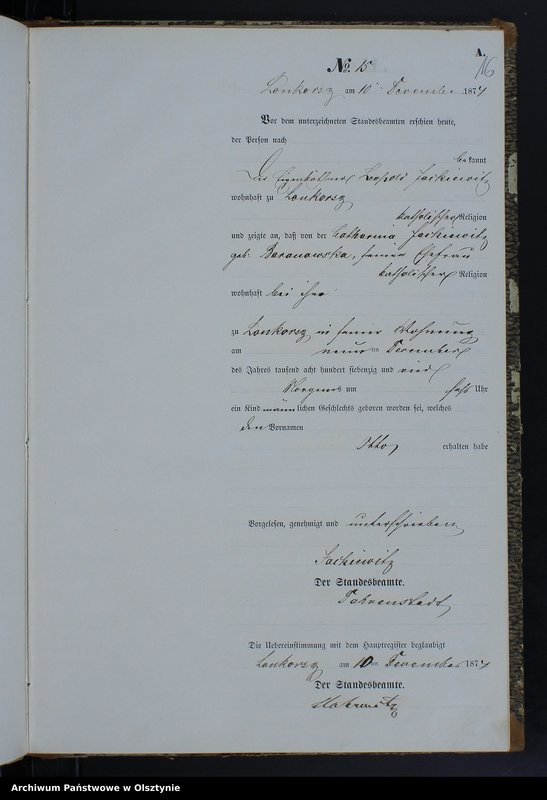 A.
16
No. 15
Lonkorsz am 10 December 1874
Vor dem unterzeichneten Standesbeamten erschien heute,
der Person nach
bekannt
Der Eigenkäthner Leopold Jackiewitz
wohnhaft zu Lonkorsz
katholischer Religion
und zeigte an, daß von der Catharina Jackiewitz
geb. Baranowska, seiner Ehefrau
katholischer Religion
wohnhaft bei ihm
zu Lonkorsz in seiner Wohnung
am neunten December
des Jahres tausend acht hundert siebenzig und vier
Morgens um sechs Uhr
ein Kind männlichen Geschlechts geboren worden sei, welches
den Vornamen
Otto erhalten habe
Vorgelesen, genehmigt und unterschrieben
Jackiewitz
Der Standesbeamte.
Die Uebereinstimmung mit dem Hauptregister beglaubigt
Lonkorsz am 10ten December 1874
Der Standesbeamte.
Archiwum Państwowe w Olsztynie